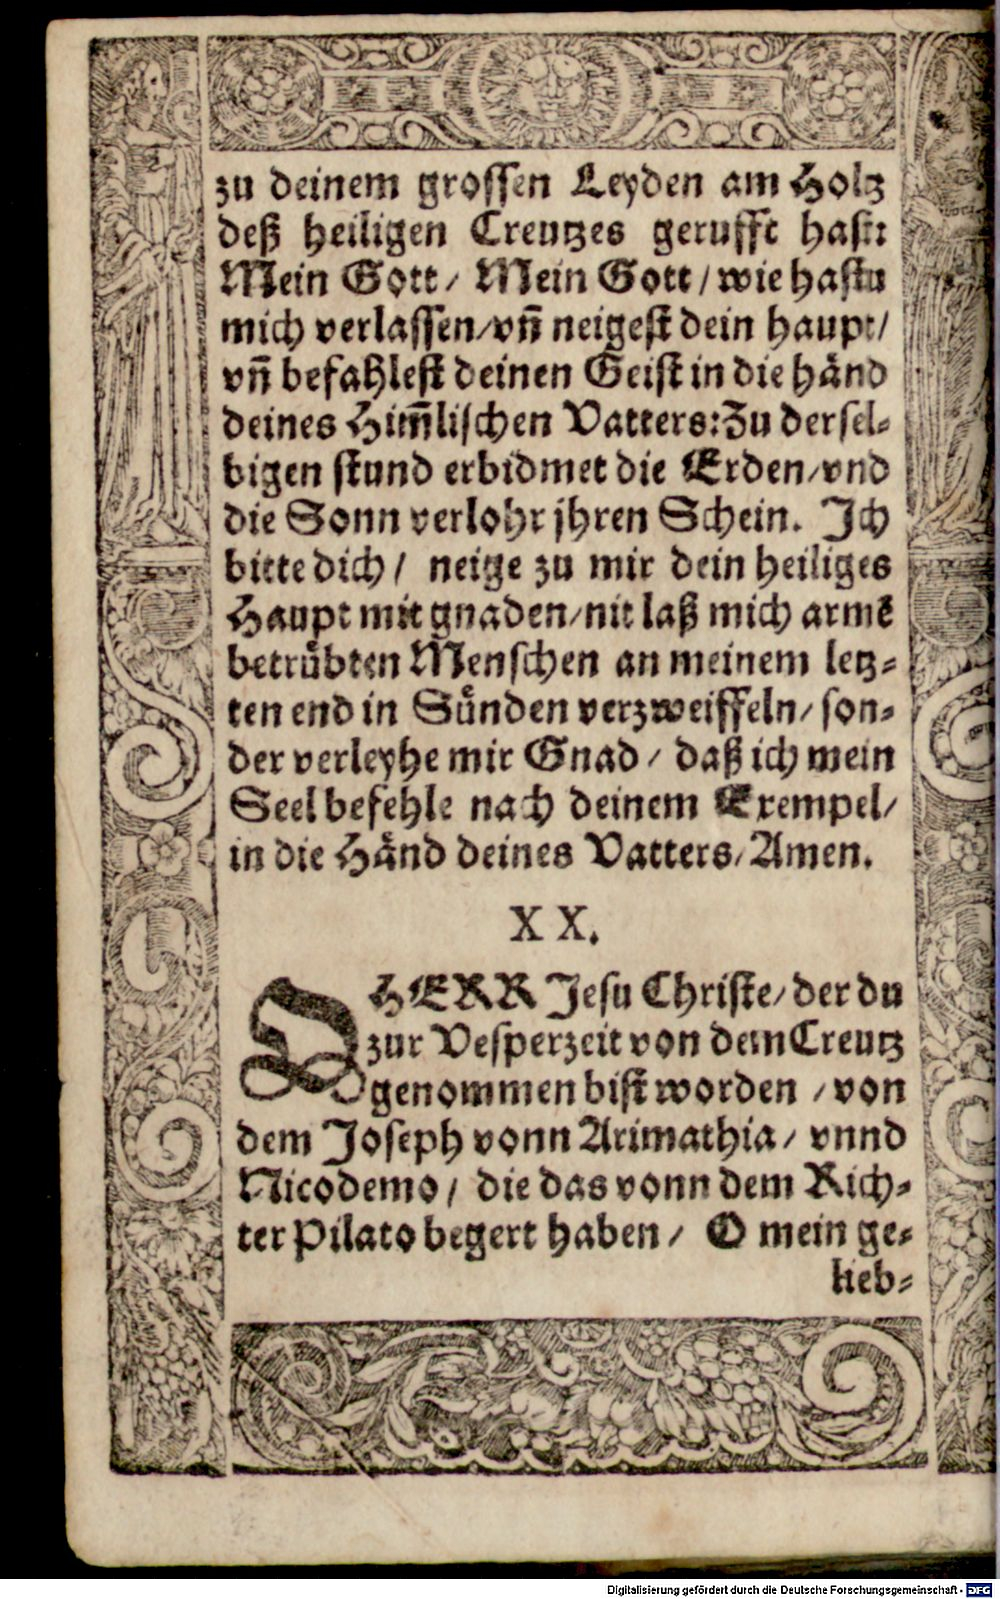 zu deinem grossen Leyden am Holtz
deß heiligen Creutzes gerufft hast:
Mein Gott/ Mein Gott/ wie hastu
mich verlassen/vn̄ neigest dein haupt/
vn̄ befahlest deinen Geist in die händ
deines Him̄lischen Vatters:Zu dersel-
bigen stund erbidmet die Erden/vnd
die Sonn verlohr jhren Schein. Jch
bitte dich/ neige zu mir dein heiliges
Haupt mit gnaden/nit laß mich armē
betrübten Menschen an meinem letz-
ten end in Sünden verzweiffeln/ son-
der verleyhe mir Gnad/ daß ich mein
Seel befehle nach deinem Exempel/
in die Händ deines Vatters/Amen.
XX.
O HERR Jesu Christe/der du
zur Vesperzeit von dem Creutz
genommen bist worden /von
dem Joseph vonn Arimathia/ vnnd
Nicodemo/ die das vonn dem Rich-
ter Pilato begert haben/ O mein ge-
lieb-
Digitalisierung gefördert durch die Deutsche Forschungsgemeinschaft - DFG